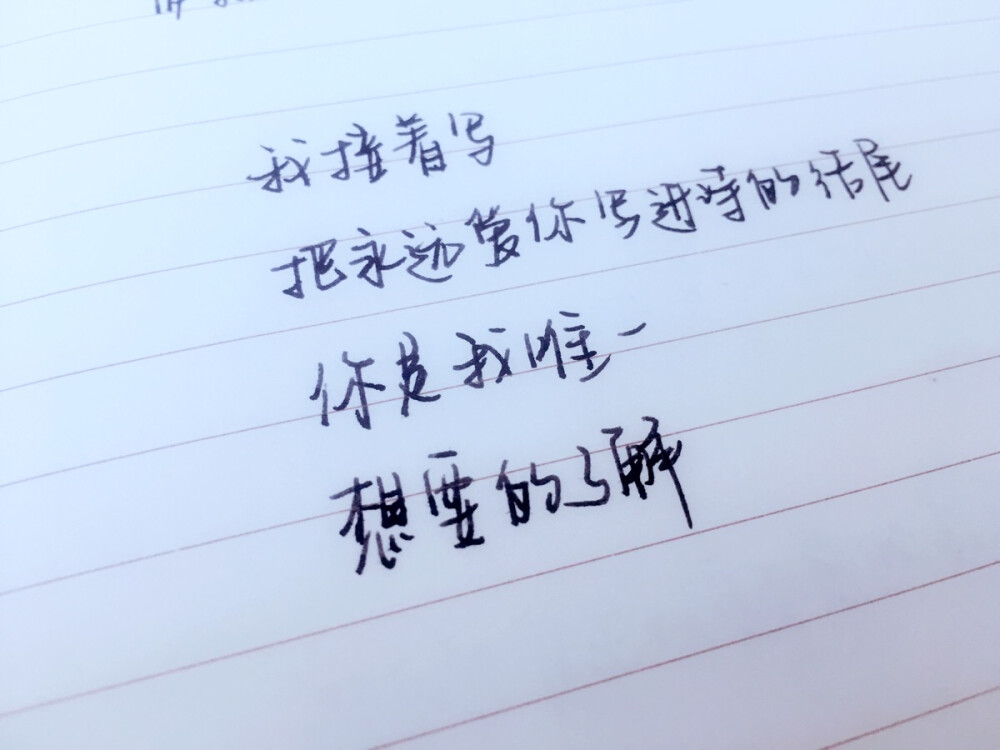 我接着写
把永远爱你写进诗的结尾
你是我唯一
想要的了解